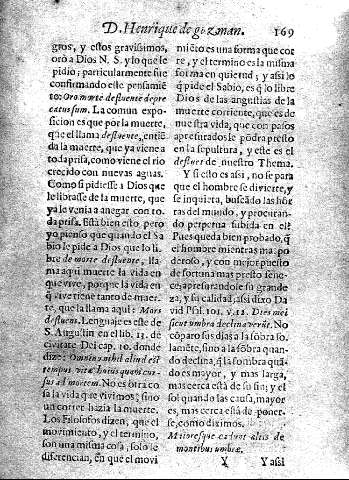 D. Henrique de guzman. 169
gros, y estos gravissimos,
orò a Dios N. S. y lo que le
pidio; particularmente fue
confirmando este pensamiẽ
to: Oro morte defluente depre
catus sum. La comun expo-
sicion es que por la muerte,
que el llama defluente, entiẽ-
da la muerte, que ya viene a
toda prisa, como viene el rio
crecido con nuevas aguas.
Como si pidiesse a Dios que
le librasse de la muerte, que
ya le venia a anegar con to-
da prisa. Està bien esto, pero
yo pienso que quando el Sa
bio le pide a Dios que lo li-
bre de morte defluente, lla-
ma aqui muerte la vida en
que vive, porque la vida en
q̃ vive tiene tanto de muer-
te, que la llama aqui: Mors
defluens. Lenguaje es este de
S. Augustin en el lib. 13. de
civitate Dei cap. 10. donde
dize: Omnino nihil aliud est
tempus vitæ huius quam cur-
sus ad mortem. No es otra co
sa la vida que vivimos, sino
un correr hazia la muerte.
Los Filosofos dizen, que el
movimiento, y el termino,
son una misma cosa, solo se
diferencian, en que el movi
miẽto es una forma que cor
re, y el termino es la misma
forma en quietud; y assi lo
q̃ pide el Sabio, es q̃ lo libre
Dios de las angustias de la
muerte corriente, que es de
nuestra vida, que con pasos
apresurados le põdra presto
en la sepultura, y este es el
defluer de nuestro Thema.
Y si esto es assi, no se para
que el hombre se divierte, y
se inquieta, buscãdo las hõr
ras del mundo, y procuran-
do perpetua subida en ell?
Pues queda bien probado, q̃
el hombre mientras mas po
deroso, y con mejor puesto
de fortuna mas presto fene-
ce, apresurandole su grande
za, y su calidad, assi dixo Da
vid Psl. 101. v. 12. Dies mei
sicut umbra declinaverũt. No
cõparo sus dias a la sõbra so-
lamẽte, sino a la sõbra quan-
do declina, q̃ la sombra quã-
do es mayor, y mas larga,
mas cerca està de su fin; y el
sol quando las causa, mayor
es, mas cerca està de poner-
se, como diximos.
Maioresque cadunt altis de
montibus umbræ.
Y Y assi